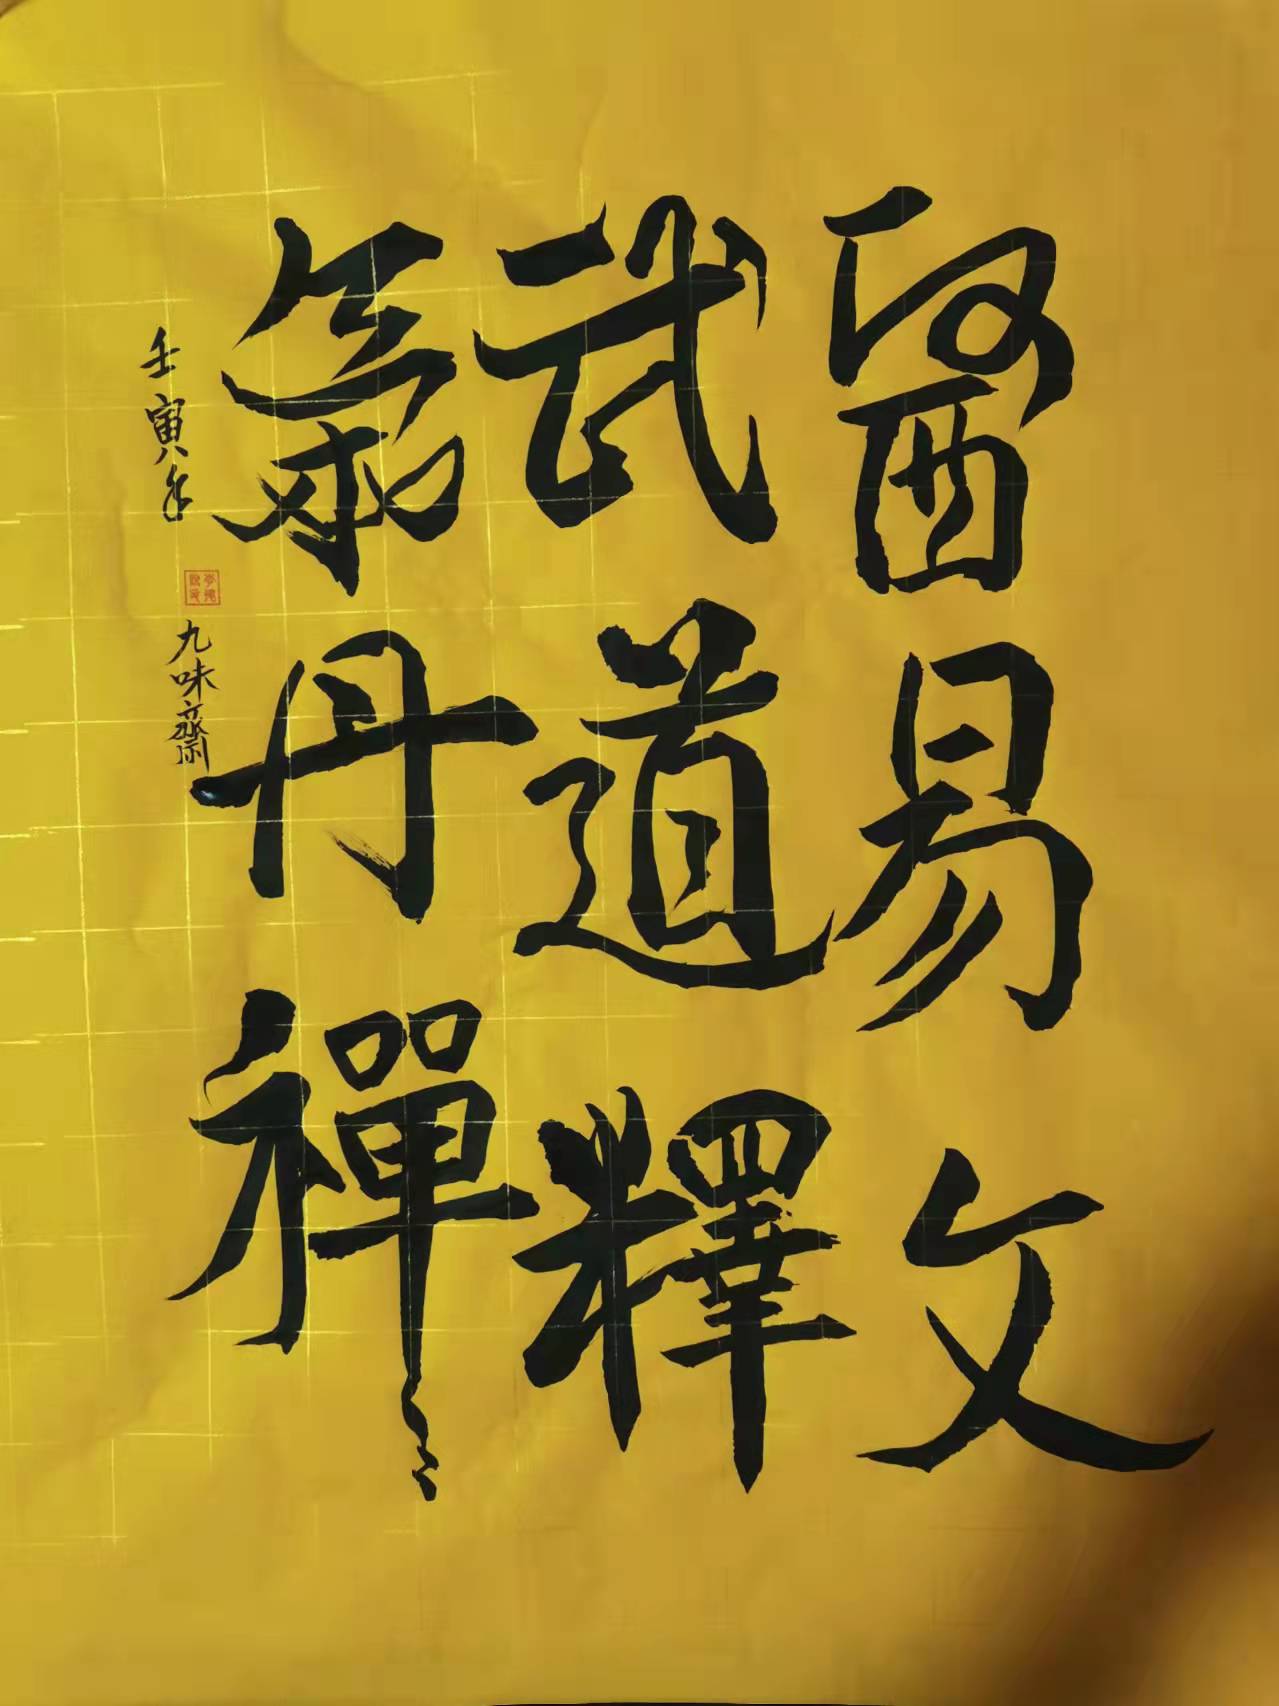 醫易文
武道釋
氣丹禪
壬寅年
九味齋